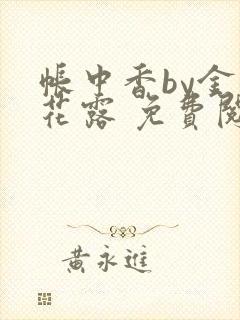 帳中香by金
花露 免費閱
黃永進